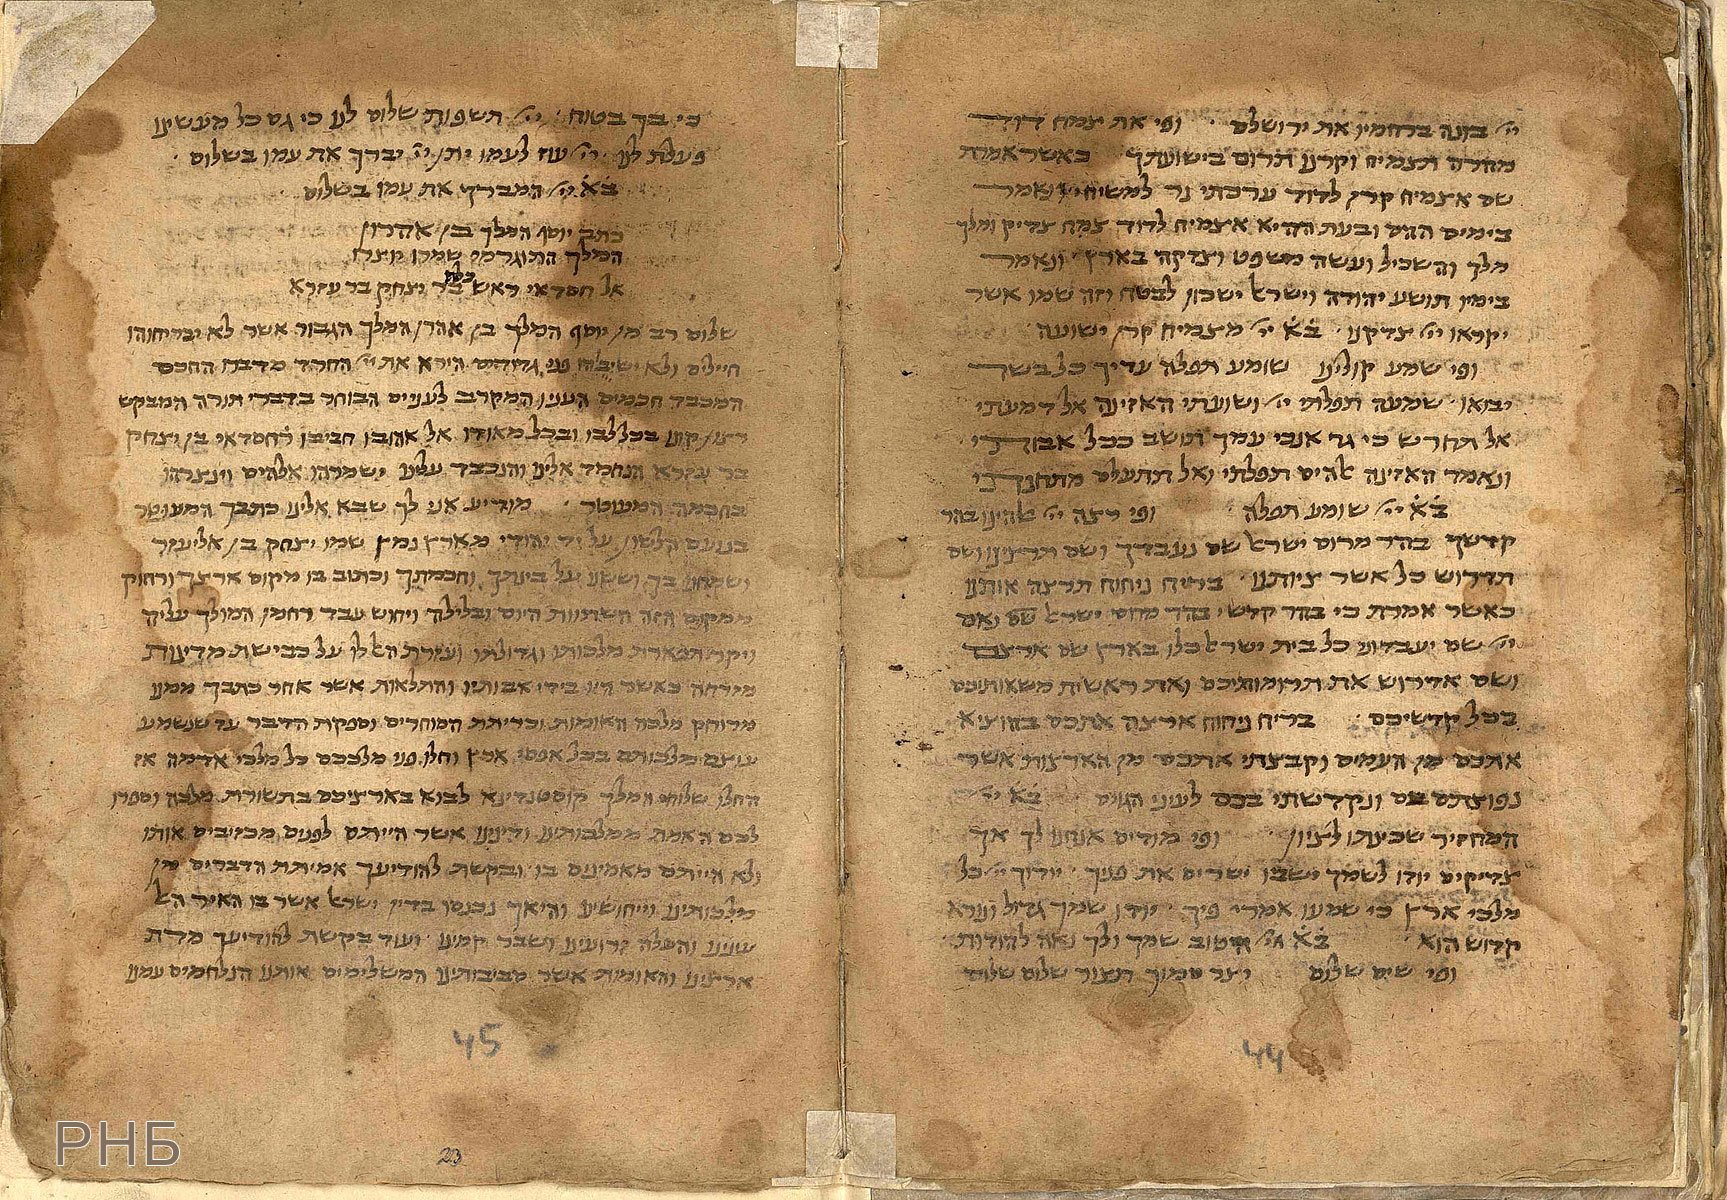 יי בונה ברחמיו את ירושלם וּפי את צמח דוד
מהרה תצמיח וקרנו תרום בישועתך כאשר אמרת
שם אצמיח קרן לדוד ערכתי נר למשיחי ונאמר
בימים ההם ובעת ההיא אצמיח לדוד צמח צדיק ומלך
מלך והשכיל ועשה משפט וצדקה בארץ ונאמר
בימיו תושע יהודה וישראל ישכון לבטח וזה שמו אשר
יקראו יי צדקנו בֹאֹ יי מצמיח קרן ישועה
ופי שמע קולינו שומע תפלה עדיך כל בשר
יבואו שמעה תפלתי יי ושועתי האזינה אל דמעתי
אל תחרש כי גר אנכי עמך תושב ככל אבותי
ונאמר האזינה אלהים תפלתי ואל תתעלם מתחנתי
בֹאֹ יי שומע תפלה ופי רצה יי אלהינו בהר
קדשך בהר מרום ישראל שם נעבדך ושם תרצינו ושם
תדרוש כל אשר ציותנו בריח ניחוח תרצה אותנו
כאשר אמרת כי בהר קדשי בהר מרום ישראל נאם
יי שם יעבדוני כל בית ישראל כלו בארץ שם ארצם
ושם אדרוש את תרומותיכם ואת ראשית משאותיכם
בכל קדשיכם בריח ניחוח ארצה אתכם בהוציא
אתכם מן העמים וקבצתי אתכם מן הארצות אשר
נפוצתם בם ונקדשתי בכם לעיני הגוים בֹאֹ יי
המחזיר שכינתו לציון ופי מודים אנחנו לך אך
צדיקים יודו לשמך ישבו ישרים את פניך יודוך יי כל
מלכי ארץ כי שמעו אמרי פיך יודו שמך גדול ונורא
קדוש הוא בֹאֹ יי הטוב שמך ולך נאה להודות
ופי שים שלום יצר סמוך תצור שלום שלום
44
כי בך בטוח יי תשפות שלום לנו כי גם כל מעשינו
פעלת לנו יי עוז לעמו יתן יי יברך את עמו בשלום
בֹאֹ יי המברך את עמו בשלום
כתב יוסף המלך בן אהרון
המלך התוגרמי
אל חסדאי ראש כלה בר יצחק בר עזרא
שלום רב מן יוסף המלך בן אהרן המלך הגבור אשר לא יבריחוהו
חיילים ולא ישיבוהו פני גדודים הירא את יי החרד מדברו החכם
המכבד חכמים הענו המקרב לעניים הבוחר בדברי תורה המבקש
רצון קונו בכל לבו ובכל מאודו אל אהובו חביבו חסדאי בן יצחק
בר עזרא הנחמד אלינו והנכבד עלינו ישמרהו אלהים וינצרהו
בחכמה המעוטר מודיע אני לך שבא אלינו כתבך המעוטר
בנועם הלשון על יד יהודי מארץ נמץ שמו יצחק בן אליעזר
ושמחנו בך וששנו על בינתך וחכמתך וכתוב בו מקום ארצך ורחוק
ממקום הזה השתוות היום ובלילה ויחוש עבד רחמן המולך עליה
ויקר תפארת מלכותו וגדולתו ועזרת האל לו על כבישת מדינות
מזרחה כאשר היו בידי אבותיו והתלאות אשר אחר כתבך ממנו
מרוחק מלכה האומות וכריתת הסוחרים וספקות הדבר עד שנשמע
עוצם מלכותם בכל אפסי ארץ וחלו פני מלככם כל מלכי אדמה אז
החלו שלוחי המלך קוסטנדינא לבוא בארציכם בתשורת מלכה וספרו
לכם האמת ממלכותינו ודינינו אשר הייתם לפנים מכזיבים אותו
ולא הייתם מאמינים בו ובקשת להודיעך אמיתת הדברים מן
מלכותינו וייחושינו והיאך נכנסו בדין ישראל אשר בו האיר האל
עינינו והפלה זרועינו ושבר קמינו ועוד בקשת להודיעך מדת
ארצינו והאומות אשר סביבותינו המשלימים אותנו הנלחמים עמנו
45
23
РНБ